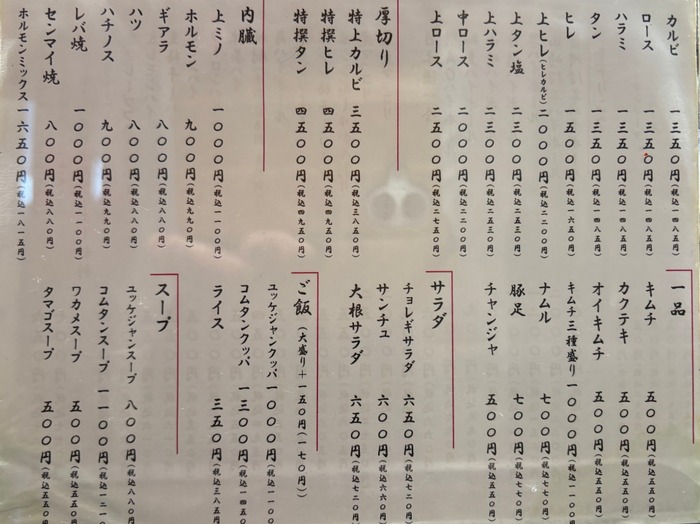 カルビ 一三五〇円(税込一四八五円)
ロース 一三五〇円(税込一四八五円)
ハラミ 一三五〇円(税込一四八五円)
タン 一三五〇円(税込一四八五円)
ヒレ 一五〇〇円(税込一六五〇円)
上ヒレ(ヒレカルビ) 二〇〇〇円(税込二二〇〇円)
上タン塩 二三〇〇円(税込二五三〇円)
上ハラミ 二三〇〇円(税込二五三〇円)
中ロース 二〇〇〇円(税込二二〇〇円)
上ロース 二五〇〇円(税込二七五〇円)
厚切り
特上カルビ 三五〇〇円(税込三八五〇円)
特撰ヒレ 四五〇〇円(税込四九五〇円)
特撰タン 四五〇〇円(税込四九五〇円)
内臓
上ミノ 一〇〇〇円(税込一一〇〇円)
ホルモン 九〇〇円(税込九九〇円)
ギアラ 八〇〇円(税込八八〇円)
ハツ 八〇〇円(税込八八〇円)
ハチノス 九〇〇円(税込九九〇円)
レバ焼 一〇〇〇円(税込一一〇〇円)
センマイ焼 八〇〇円(税込八八〇円)
ホルモンミックス 一六五〇円(税込一八一五円)
一品
キムチ 五〇〇円(税込五五〇円)
カクテキ 五〇〇円(税込五五〇円)
オイキムチ 五〇〇円(税込五五〇円)
キムチ三種盛り 一〇〇〇円(税込一一〇〇円)
ナムル 七〇〇円(税込七七〇円)
豚足 七〇〇円(税込七七〇円)
チャンジャ 五〇〇円(税込五五〇円)
サラダ
チョレギサラダ 六五〇円(税込七二〇円)
サンチュ 六〇〇円(税込六六〇円)
大根サラダ 六五〇円(税込七二〇円)
ご飯(大盛り+一五〇円(一七〇円))
ユッケジャンクッパ 一〇〇〇円(税込一一〇〇
コムタンクッパ 一三〇〇円(税込一四五〇
ライス 三五〇円(税込三八五円
スープ
ユッケジャンスープ 八〇〇円(税込八八〇円
コムタンスープ 一一〇〇円(税込一二一〇
ワカメスープ 五〇〇円(税込五五〇円
タマゴスープ 五〇〇円(税込五五〇円